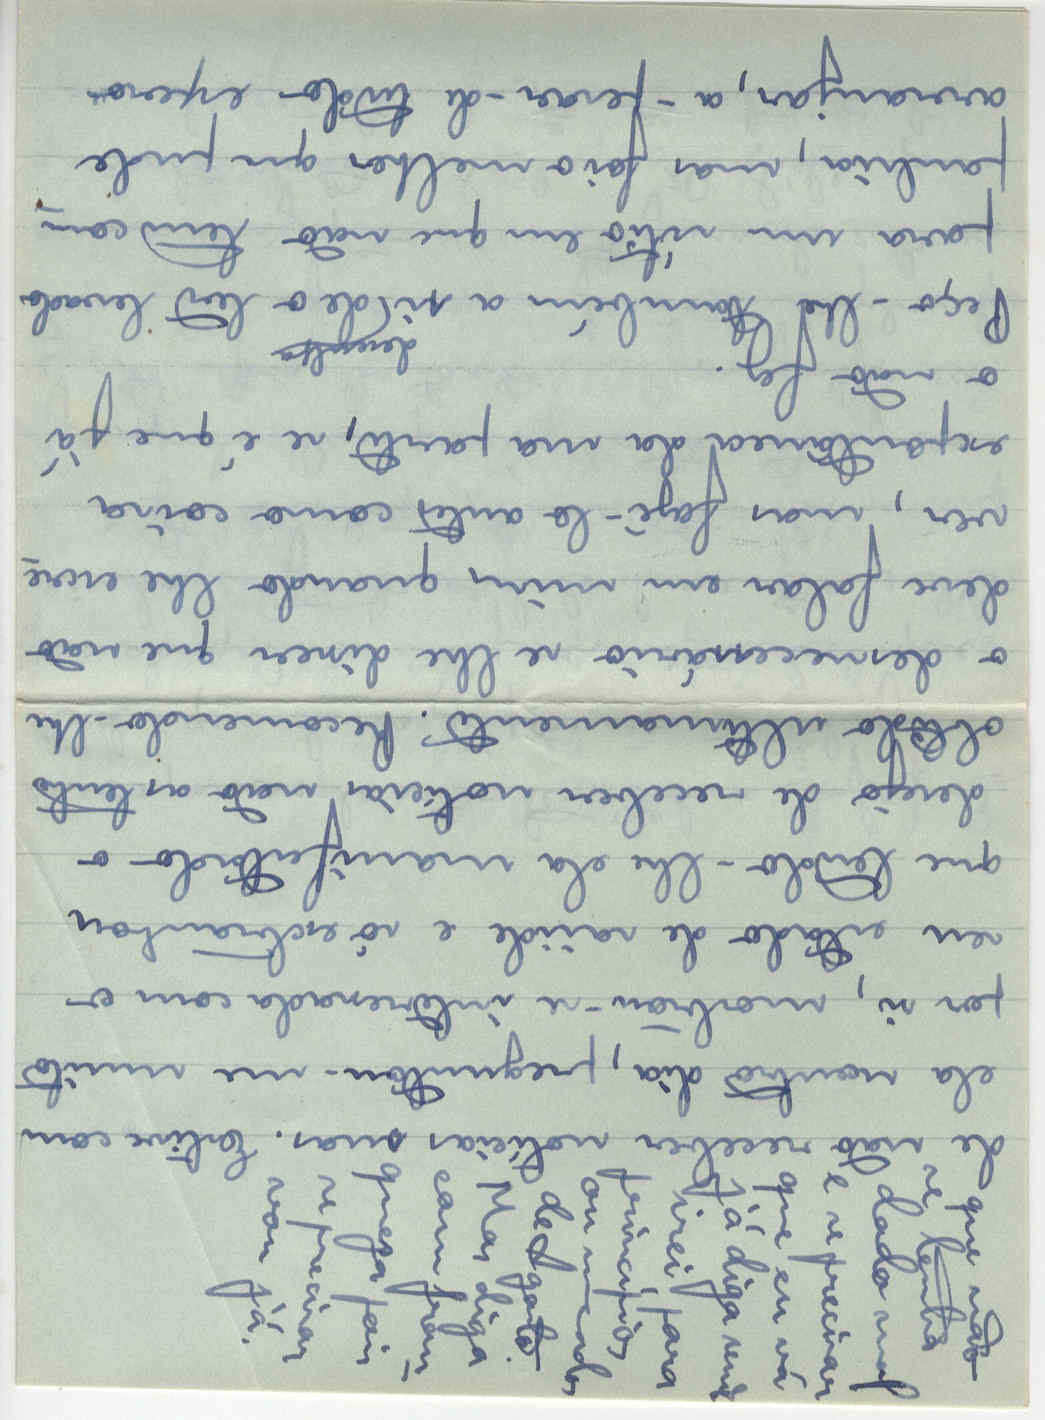 de não receber notícias suas. Estive com
ela noutro dia, preguntou-me muito
por si, mostrou-se interessada com o
seu estado de saúde e só estranhou
que tendo-lhe ela manifestado o
desejo de receber notícias não as tenha
obtido ultimamente. Recomendo-lhe
o desnecessário se lhe disser que não
deve falar em mim quando lhe escre-
ver, mas fazê-lo antes como coisa
espontânea da sua parte, se é que já
o não fez.
Peço-lhe também a si de o ter levado
desculpa
para um sítio em que não tem com-
panhia, mas foi o melhor que pude
arranjar, a-pesar-de tudo espero
que não
se tenha
dado mal
e se precisar
que eu vá
já diga-me
irei para
princípios
ou meados
de Agosto.
Mas diga
com fran-
queza pois
se precisar
vou já.